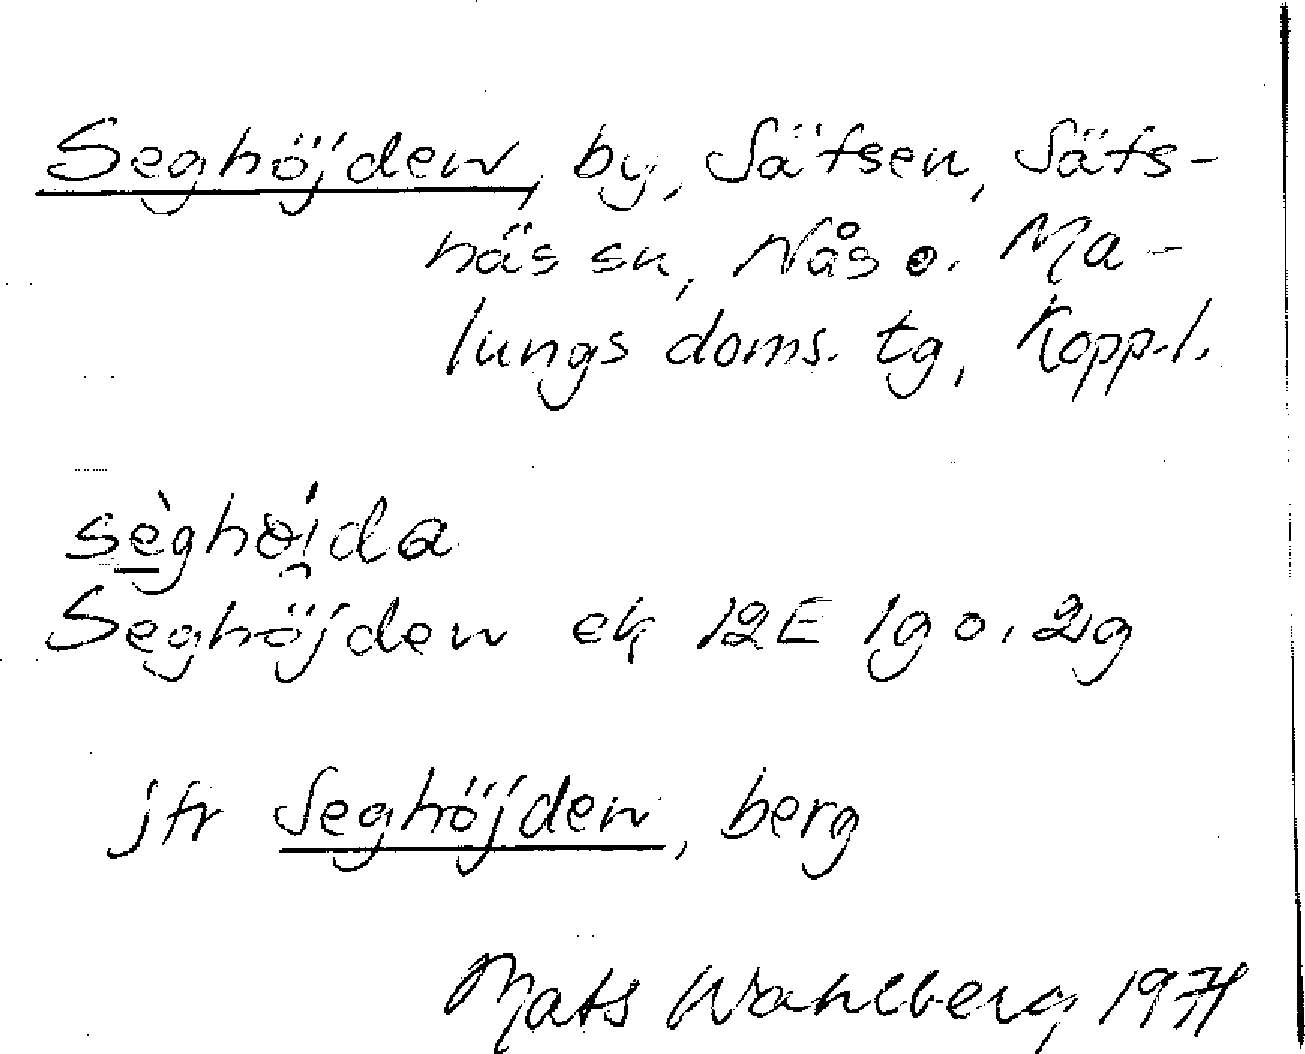 Seghöjden, by, Sätsen, Säfs-
näs sn, Nås o. Ma-
lungs doms. tg, Kopp.l.
sèghöi̯da
Seghöjden ek 12E 1g o. 2g
jfr Seghöjden, berg
Mats Wahlberg 1971